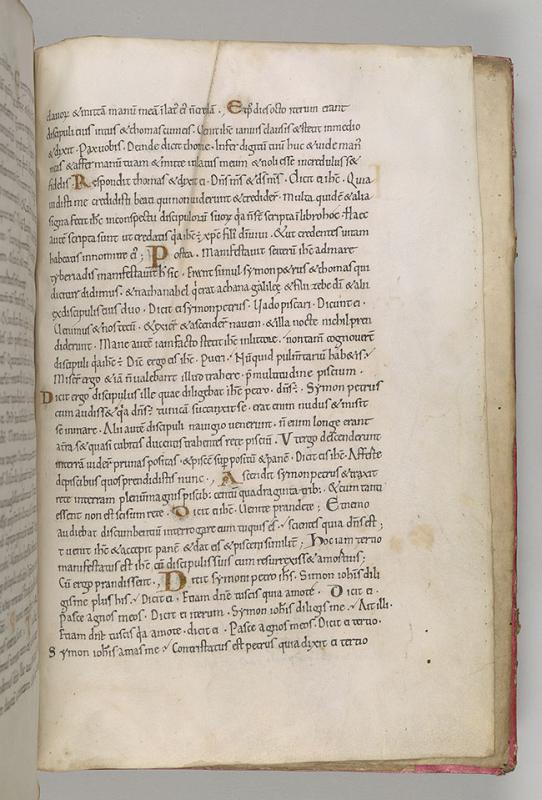 clavorū & mittā manū meā ī lat' ei' n̄ credā. Et p' dies octo iterum erant
discipuli eius intus & thomas cum eis. Venit ihc ianuis clausis & stetit in medio
& dixit. Pax vobis. Deinde dicit thome. Infer digitū tuū huc & uide man'
meas & affer manū tuam & mitte in latus meum & noli esse incredulus s&
fidelis. Respondit thomas & dixit ei. Dn̄s m̄s & d̄s m̄s. Dicit ei ihc. Quia
uidisti me credidisti beati qui non uiderunt & crediderˀ. Multa quidē & alia
signa fecit ihc in conspectu discipulorū suorū q̄ n̄ st̄ scripta ī libro hoc. Haec
autē scripta sunt ut credatis q̄a ihc ē xp̄c fili' dī uiui. & ut credentes uitam
habeatis in nomine ei'; Postea. Manifestavit se iterū ihc ad mare
tyberiadis manifestavit h' sic. Erant simul symon p&rus & thomas qui
dicitur didimus. & nathanahel q' erat achana galileę & filii zebedei & alii
ex discipulis eius duo. Dicit ei symon petrus. Uado piscari. Dicunt ei.
Uenimus & nos tecū. & exierˀ & ascenderˀ nauem. & illa nocte nichil pren
diderunt. Mane autē iam facto stetit ihc in littore. non tam̄ cognouerˀ
discipuli q̄a ihc ē. Dic̄ ergo eis ihc. Pueri. Nunquid pulm̄tariū hab&is.
Miserˀ ergo & iā n̄ ualebant illud trahere. p̄ multitudine piscium.
Dicit ergo discipulus ille quē diligebat ihc petro. dn̄s ē. Symon petrus
cum audiss& q̄a dn̄s ē tunicā succinxit se. erat enim nudus & misit
se in mare. Alii autē discipuli nauigio venerunt. n̄ enim longe erant
a t̄ra. s& quasi cubitis ducentis trahentes rete pisciū. Ut ergo descenderunt
in terrā uiderˀ prunas positas. & piscē sup positū & panē. Dicit eis ihc. Afferte
de piscibus quos prendidistis nunc. Ascendit symon petrus & traxit
rete in terram plenū magnis piscib; centū quadraginta trib;. & cum tanti
essent non est scissum rete. Dicit ei ihc. Venite prandete; Et nemo
audebat discumbentiū interrogare eum tu quis es. scientes quia dn̄s est;
& uenit ihc & accepit panē & dat eis & piscem similit̄; Hoc iam tertio
manifestatus est ihc cū discipulis suis cum resurrexiss& a mortuis;
Cū ergo prandissent. Dicit symoni petro ihs. Simon iohis dili
gis me plus his. Dicit ei. Etiam dn̄e tu scis quia amo te. Dicit ei.
Pasce agnos meos. Dicit ei iterum. Symon iohis diligis me. Ait illi.
Etiam dn̄e tu scis q̄a amo te. dicit ei. Pasce agnos meos. Dicit ei tertio.
Symon iohis amas me. Contristatus est petrus quia dixit ei tertio